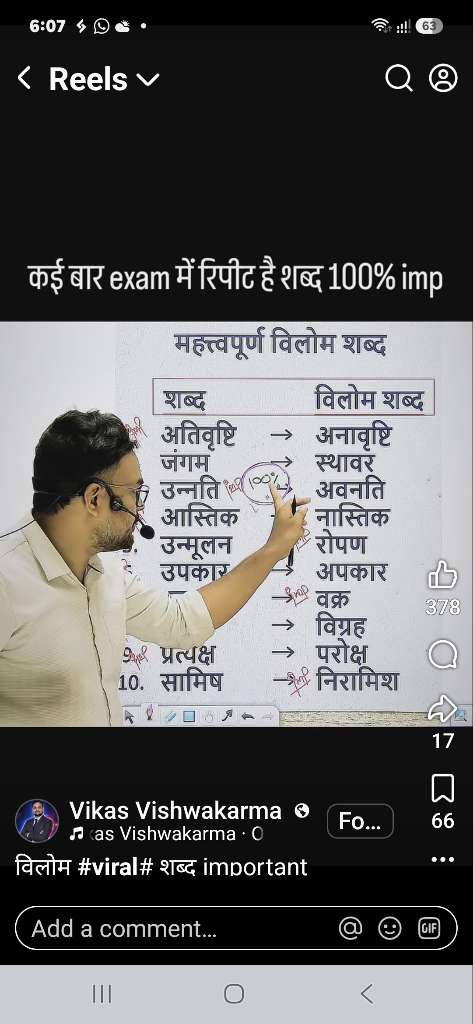 6:07
63
Reels
कई बार exam में रिपीट है शब्द 100% imp
महत्त्वपूर्ण विलोम शब्द
शब्द विलोम शब्द
अतिवृष्टि → अनावृष्टि
जंगम → स्थावर
उन्नति 100% → अवनति
आस्तिक नास्तिक
उन्मूलन रोपण
उपकार → अपकार
→ वक्र
→ विग्रह
9. प्रत्यक्ष → परोक्ष
10. सामिष → निरामिश
378
17
66
Vikas Vishwakarma
as Vishwakarma ·
Fo...
विलोम #viral# शब्द important
Add a comment...
GIF